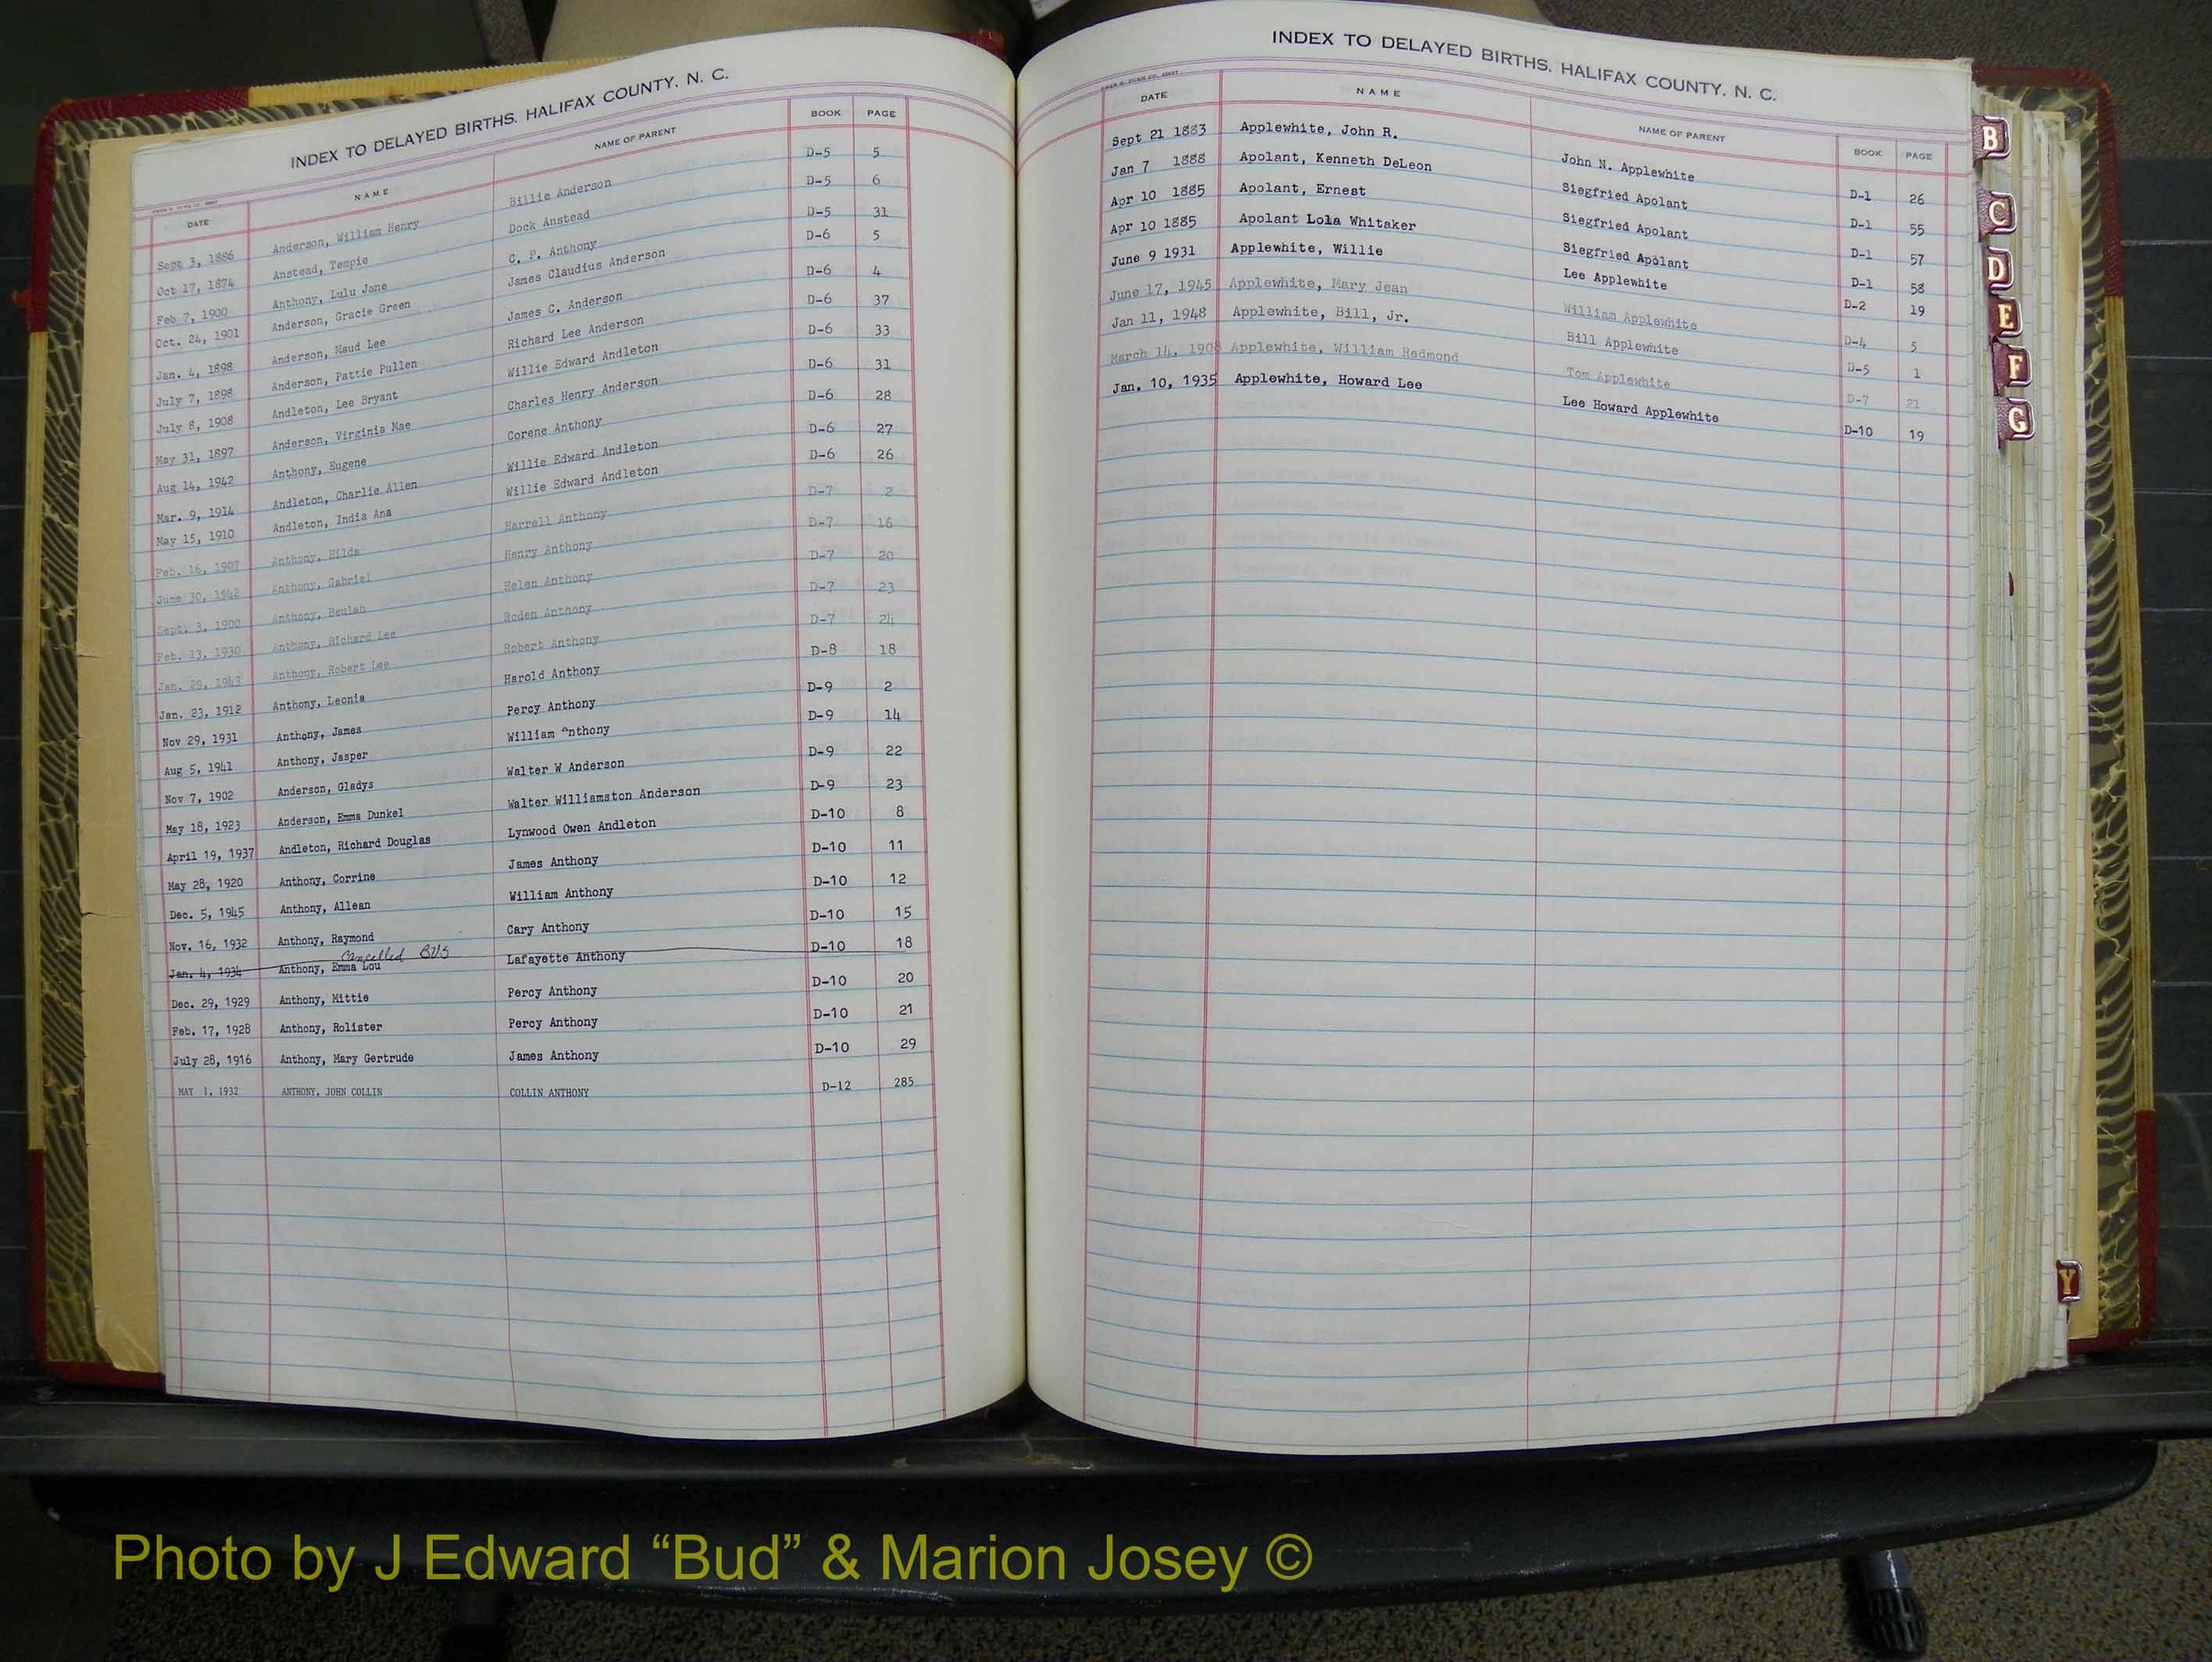 INDEX TO DELAYED BIRTHS. HALIFAX COUNTY. N. C.
DATE NAME NAME OF PARENT BOOK PAGE
Sept 3, 1886 Anderson, William Henry Billie Anderson D-5 5
Oct 17, 1874 Anstead, Tempie Dock Anstead D-5 6
Feb 7, 1900 Anthony, Lulu Jane C. P. Anthony D-5 31
Oct. 24, 1901 Anderson, Gracie Green James Claudius Anderson D-6 5
Jan. 4, 1898 Anderson, Maud Lee James C. Anderson D-6 4
July 7, 1898 Anderson, Pattie Pullen Richard Lee Anderson D-6 37
July 8, 1908 Andleton, Lee Bryant Willie Edward Andleton D-6 33
May 31, 1897 Anderson, Virginia Mae Charles Henry Anderson D-6 31
Aug 14, 1942 Anthony, Eugene Corene Anthony D-6 28
Mar. 9, 1914 Andleton, Charlie Allen Willie Edward Andleton D-6 27
May 15, 1910 Andleton, India Ana Willie Edward Andleton D-6 26
Feb. 16, 1907 Anthony, Hilda Harrell Anthony D-7 2
June 30, 1942 Anthony, Gabriel Henry Anthony D-7 16
Sept. 3, 1900 Anthony, Beulah Helen Anthony D-7 20
Feb. 13, 1930 Anthony, Richard Lee Roden Anthony D-7 23
Jan. 29, 1943 Anthony, Robert Lee Robert Anthony D-7 24
Jan. 23, 1912 Anthony, Leonia Harold Anthony D-8 18
Nov 29, 1931 Anthony, James Percy Anthony D-9 2
Aug 5, 1941 Anthony, Jasper William Anthony D-9 14
Nov 7, 1902 Anderson, Gladys Walter W Anderson D-9 22
May 18, 1923 Anderson, Emma Dunkel Walter Williamston Anderson D-9 23
April 19, 1937 Andleton, Richard Douglas Lynwood Owen Andleton D-10 8
May 28, 1920 Anthony, Corrine James Anthony D-10 11
Dec. 5, 1945 Anthony, Allean William Anthony D-10 12
Nov. 16, 1932 Anthony, Raymond Cary Anthony D-10 15
Cancelled BVS
Jan. 4, 1934 Anthony, Emma Lou Lafayette Anthony D-10 18
Dec. 29, 1929 Anthony, Mittie Percy Anthony D-10 20
Feb. 17, 1928 Anthony, Rolister Percy Anthony D-10 21
July 28, 1916 Anthony, Mary Gertrude James Anthony D-10 29
MAY 1, 1932 ANTHONY, JOHN COLLIN COLLIN ANTHONY D-12 285
INDEX TO DELAYED BIRTHS. HALIFAX COUNTY. N. C.
DATE NAME NAME OF PARENT BOOK PAGE
Sept 21 1883 Applewhite, John R. John N. Applewhite D-1 26
Jan 7 1888 Apolant, Kenneth DeLeon Siegfried Apolant D-1 55
Apr 10 1885 Apolant, Ernest Siegfried Apolant D-1 57
Apr 10 1885 Apolant Lola Whitaker Siegfried Apolant D-1 58
June 9 1931 Applewhite, Willie Lee Applewhite D-2 19
June 17, 1945 Applewhite, Mary Jean William Applewhite D-4 5
Jan 11, 1948 Applewhite, Bill, Jr. Bill Applewhite D-5 1
March 14, 1908 Applewhite, William Redmond Tom Applewhite D-7 21
Jan. 10, 1935 Applewhite, Howard Lee Lee Howard Applewhite D-10 19
B
C
D
E
F
G
Y
Photo by J Edward “Bud” & Marion Josey ©